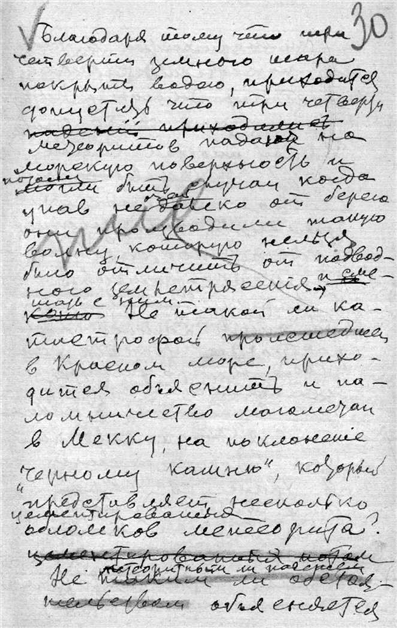 30
Благодаря тому что три
четверти земного шара
покрыты водою, приходится
допустить что три четверти
падений приходилось
метеоритов падали на
морскую поверхность и
могли быть случаи когда
упав недалеко от берега
они производили такую
волну, которую нельзя
было отличить от подвод-
ного землетрясения
Не такой ли ка-
тастрофой происшедшей
в Красном море, прихо-
дится объяснить и па-
ломничество магометан
в Мекку, на поклонение
"черному камню", который
представляет несколько
цементированных
обломков метеорита?
цементированных
метеоритным ли падением
Не таким ли обстоя-
тельством объясняется